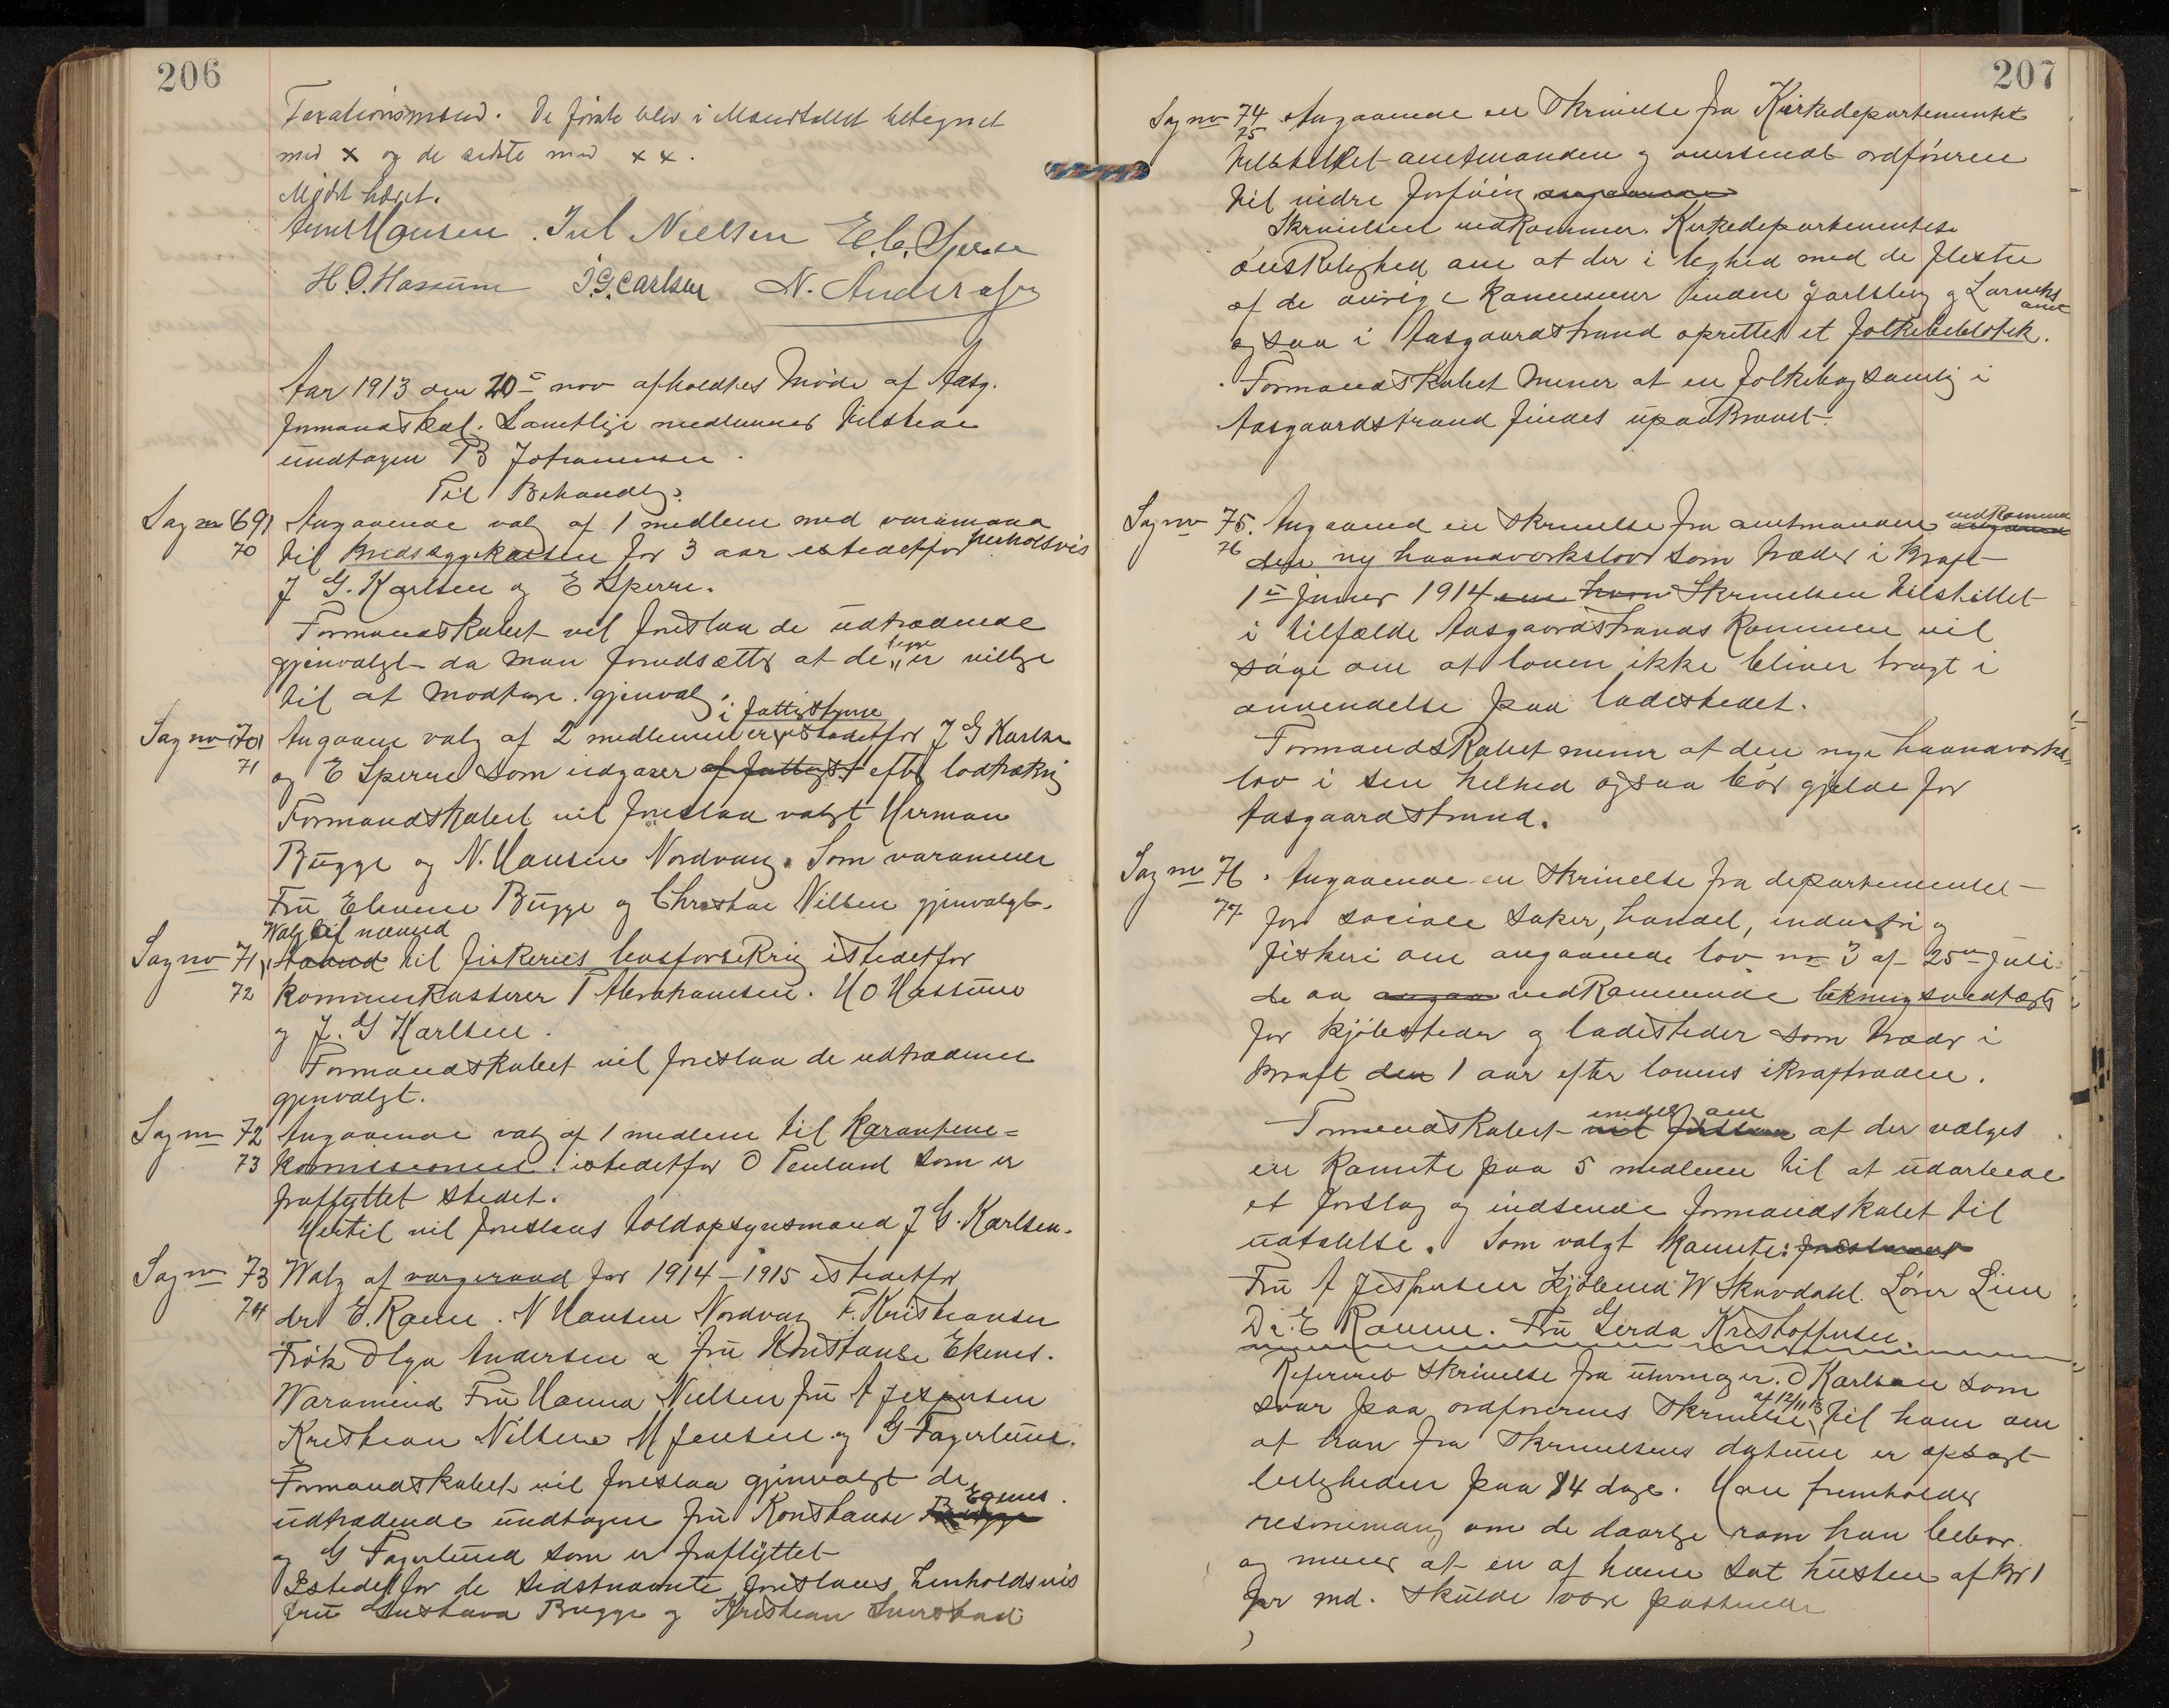 206
Taxationsmænd. De første blev i Mandtallet betegnet
med x og de sidste med x x.
Mødet hævet.
Hansen. Jul Nielsen E. Sperre
H. O. Hassum J. G. Carlsen N. Andersen
Aar 1913 den 20de nov afholdtes Møde af Aasg.
formandskab. Samtlige medlemmer tilstede
undtagen B Johannesen.
Til Behandlg:
Sag no 69 Angaaende valg af 1 medlem med varamand
70 til Kredssygekassen for 3 aar istedetfor henholdsvis
J G. Karlsen og E Sperre.
Formandskabet vil foreslaa de udtrædende
gjenvalgt da man forudsætter at de begge er villige
til at modtage gjenvalg.
Sag no 70 Angaaene valg af 2 medlemmer i fattigstyre istedetfor J G Karlsen
71 og E Sperre som udgaaer af fattigst efter lodtrækng
Formandskabet vil foreslaa valgt Herman
Bugge og N. Hansen Nordvang. Som varamænd
Fru Elenene Bugge og Christian Nilsen gjenvalgt.
Valg til nævnd
Sag no 71 til fiskeriets leasforsikring istedetfor
72 kommunekasserer T Abrahamsen. H O Hassum
og J. G Karlsen.
Formandskabet vil foreslaa de udtrædende
gjenvalgt.
Sag no 72 Angaaende valg af 1 medlem til Karantene=
73 kommissionen istedetfor O Tenlund som er
fraflyttet stedet.
Hertil vil foreslaaes toldopsynsmand J G. Karlsen.
Sag no 73 Valg af vargeraad for 1914-1915 istedetfor
74 dr E. Ranne. N Hansen Nordvang F. Kristiansen
Frøk Olga Andersen & fru Konstanse Ekenes.
Varamænd Fru Hanna Nielsen fru A Jespersen
Kristian Nilsen M Jensen og G Fagerlund.
Formandskabet vil foreslaa gjenvalgt de
udtrædende undtagen fru Konstanse Bugge Egenes.
og G Fagerlund som er fraflyttet
Istedetfor de sidstnævnte foreslaaes henholdsvis
fru Gustava Bugge og Kristian
207
Sag no 74 Angaaende en skrivelse fra Kirkedepartementet
75 tilstillet amtmanden og oversendt ordføreren
til videre forføing angaaende
Skrivelsen vedkommer Kirkedepartementets
ønskelighed om at der i lighed med de fleste
af de øvrige kommuner inden Jarlsberg og Larviks amt
ogsaa i Aasgaardstrand oprettes et folkebibliotek.
Formandskabet mener at en folkebogsamlig i
Aasgaardstrand findes upaakrævet.
Sag no 75. Angaaend en skrivelse fra amtmanden vedkommende angaaende
76 den ny haandværkslov som træder i kraft
1ste januar 1914 Skrivelsen tilstillet
i tilfælde Aasgaardstrands kommune vil
søge om at loven ikke bliver bragt i
anvendelse paa ladestedet.
Formandskabet mener at den nye haandværks-
lov i sin helhed ogsaa bør gjelde for
Aasgaardstrand.
Sag no 76. Angaaende en skrivelse fra departementet
77 for sociale saker, handel, industri og
fiskeri om angaaende lov no 3 af 25de juli
vedkommende lukningsvedtægt
for kjøbsteder og ladesteder som træder i
kraft den 1 aar efter lovens ikraftræden.
Formandskabet vil foreslaa at der vælges
en komite paa 5 medlemer til at udarbeide
et forslag og indsende formandskabet til
udtalelse. Som valgt komite: foreslaaes
Fru A Jespersen Kjøbmd W Skavdahl. Lærer Lien
Dr. E Ranne. Fru Gerda Kristoffersen.
Refereret skrivelse fra urmager O Karlsen som
svar paa ordførerens skrivelse af 12/11 13 til ham om
at han fra skrivelsens datum er opsagt
leiligheden paa 14 dage. Han fremholder
resonemang om de daarlige rom han bebor
og mener at en af ham sat husleie af kr 1
pr md. skulde være passende